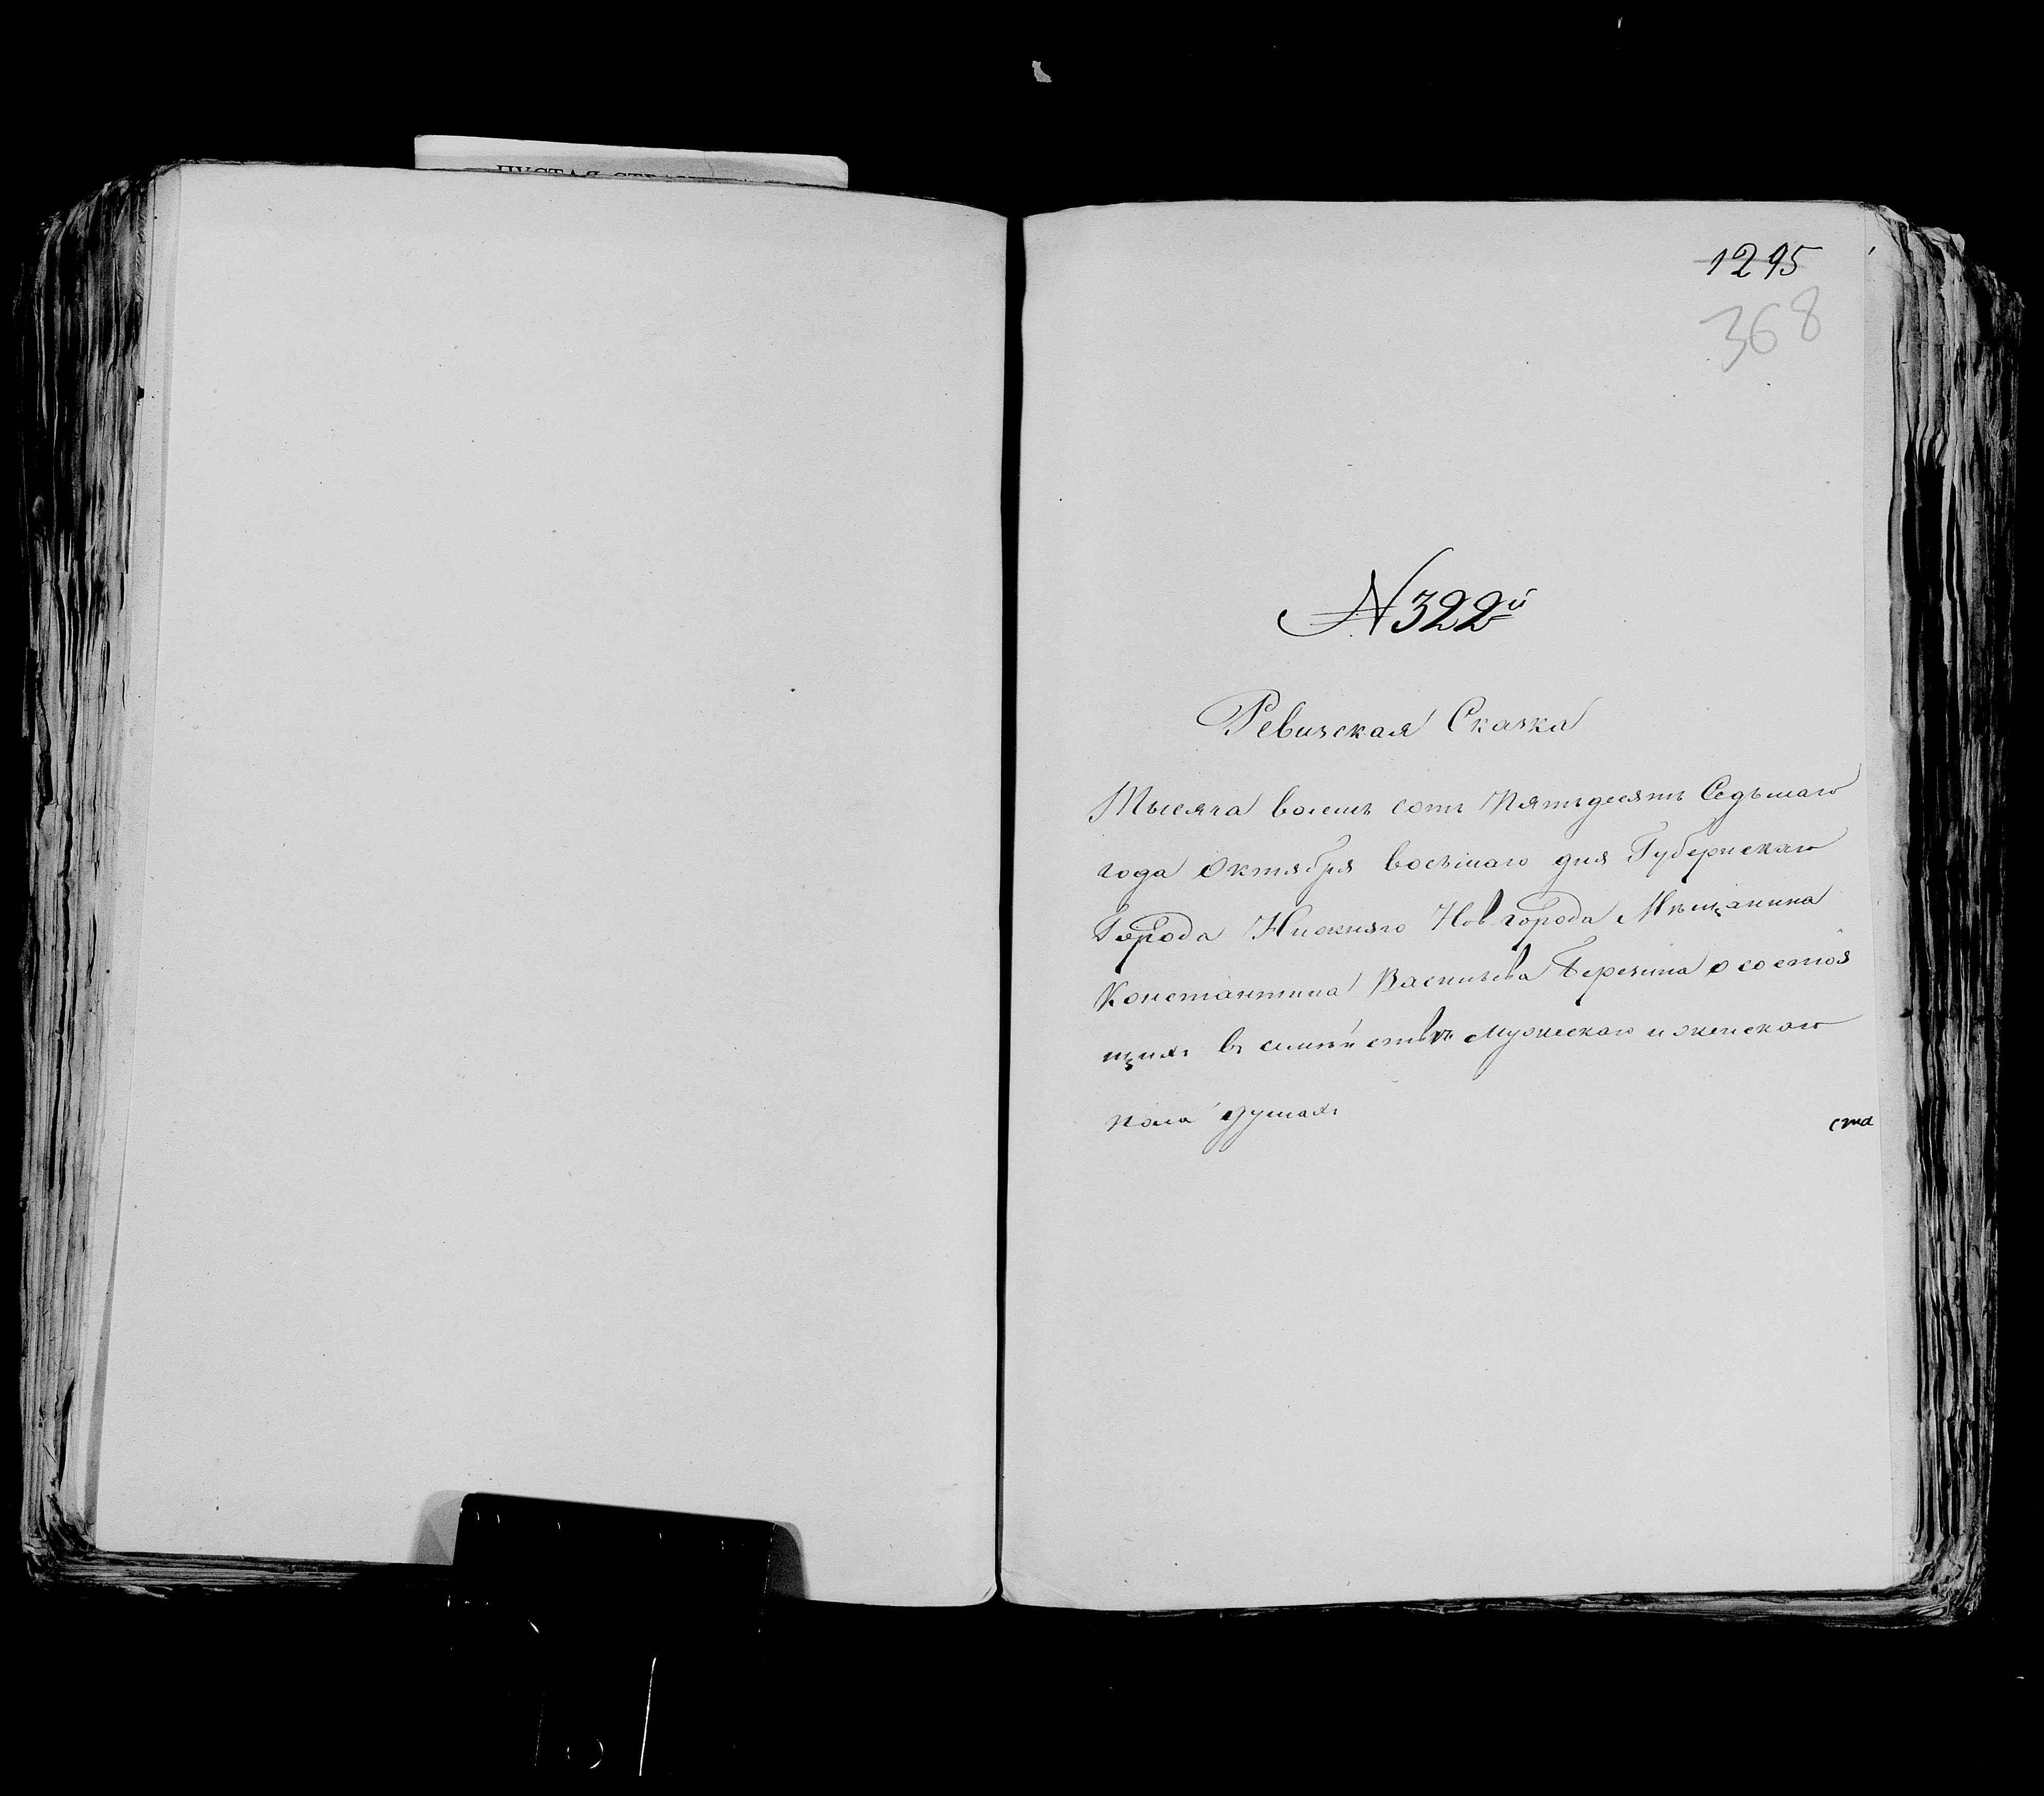 ПУСТАЯ
1295
368
N 322й
Ревизская Сказка
Тысяча восемь сотъ Пятьдесятъ Седьмаго
года Октября восьмаго дня Губернскаго
Города Нижняго Новгорода Мѣщанина
Константина Васильева Березина о состоя
щихъ въ семѣйствѣ мужескаго и женскаго
пола душахъ